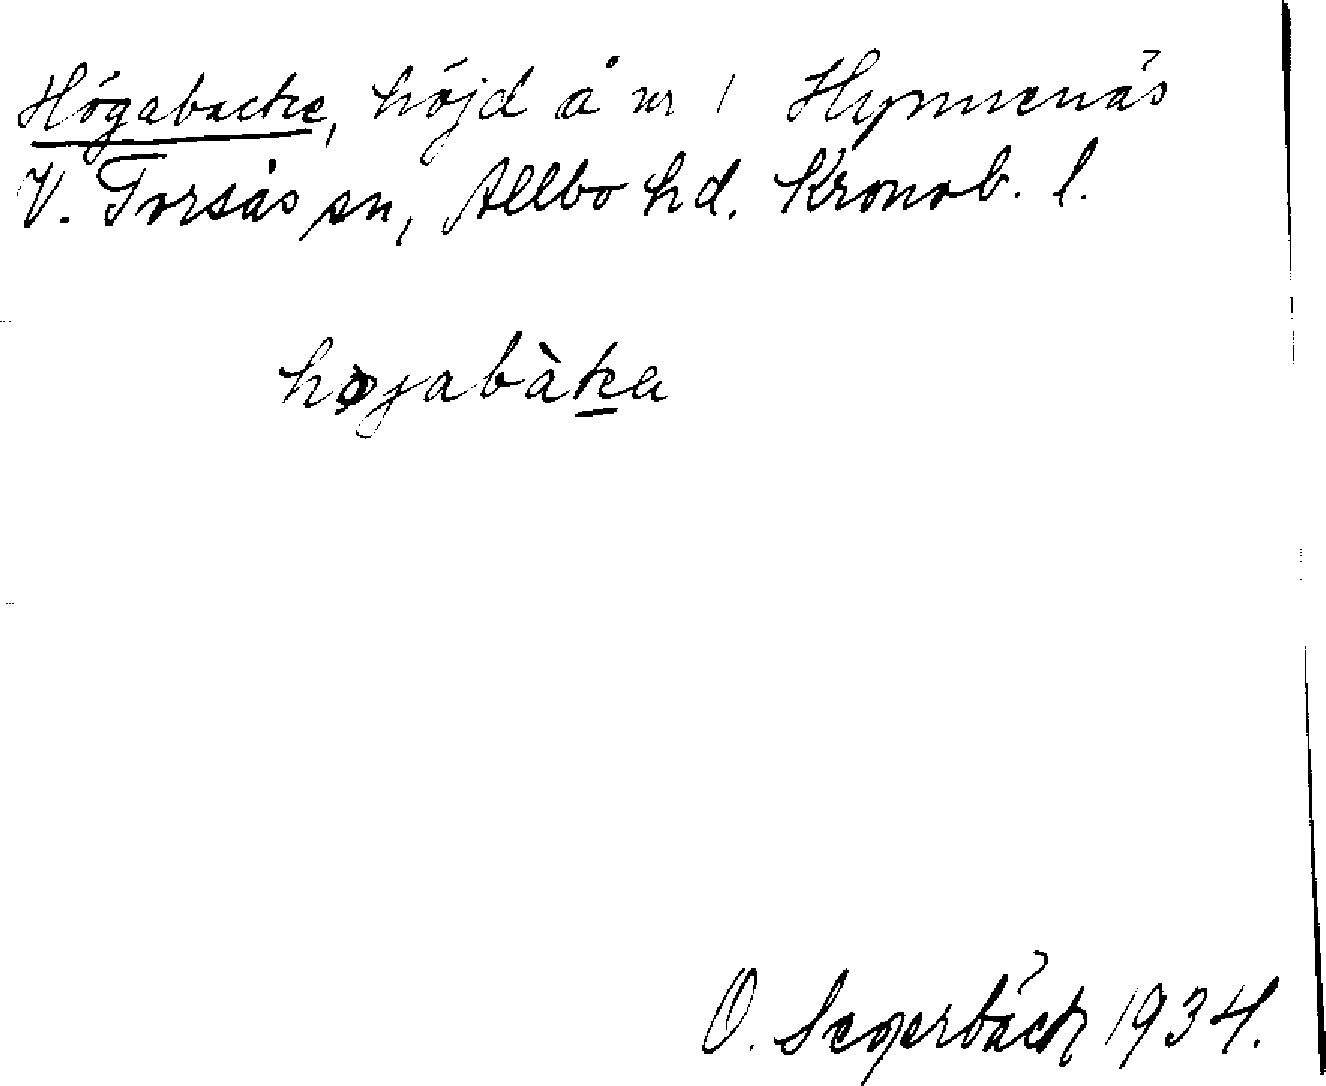 Högabacke, höjd å nr 1 Hymmenäs
V. Torsås sn, Allbo hd. Kronob. l.
højabàka
O. Segerbäck 1934.